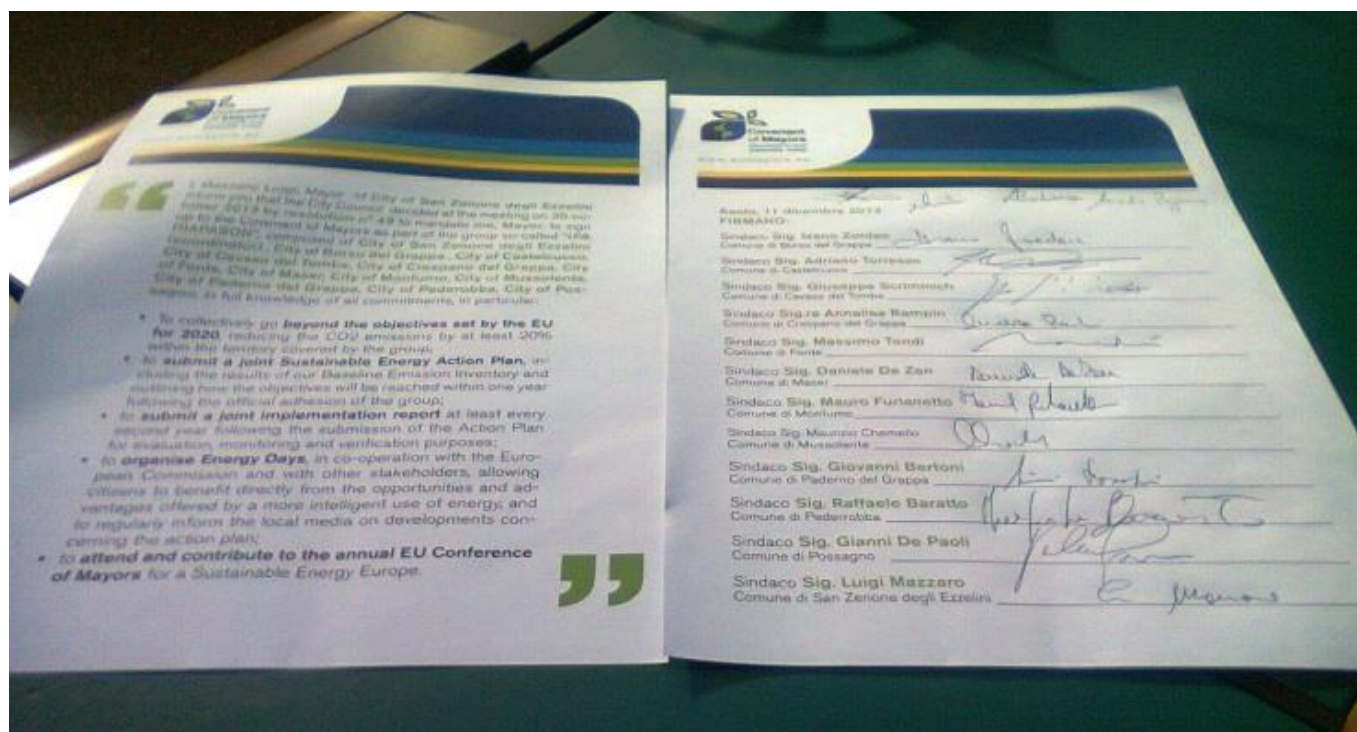 Covenant
of Mayors
I, Mazzaro Luigi, Mayor of City of San Zenone degli Ezzelini
inform you that the City Council decided at the meeting on 30
2013 by resolution n° 49 to mandate me, Mayor, to sign
up to the Covenant of Mayors as part of the group so called "IPA
DIAPASON", composed of City of San Zenone degli Ezzelini
(coordinator), City of Borso del Grappa, City of Castelcucco,
City of Cavaso del Tomba, City of Crespano del Grappa, City
of Fonte, City of Maser, City of Monfumo, City of Mussolente,
City of Paderno del Grappa, City of Pederobba, City of Pos-
sagno, in full knowledge of all commitments, in particular:
• To collectively go beyond the objectives set by the EU
for 2020, reducing the CO2 emissions by at least 20%
within the territory covered by the group;
• to submit a joint Sustainable Energy Action Plan, in-
cluding the results of our Baseline Emission Inventory and
outlining how the objectives will be reached within one year
following the official adhesion of the group;
• to submit a joint implementation report at least every
second year following the submission of the Action Plan
for evaluation, monitoring and verification purposes;
• to organise Energy Days, in co-operation with the Euro-
pean Commission and with other stakeholders, allowing
citizens to benefit directly from the opportunities and ad-
vantages offered by a more intelligent use of energy, and
to regularly inform the local media on developments con-
cerning the action plan;
• to attend and contribute to the annual EU Conference
of Mayors for a Sustainable Energy Europe.
Covenant
of Mayors
www.eumayors.eu
Asolo, 11 dicembre 2013
FIRMANO:
Sindaco Sig. Ivano Zordan
Comune di Borso del Grappa
Sindaco Sig. Adriano Torresan
Comune di Castelcucco
Sindaco Sig. Giuseppe Scriminich
Comune di Cavaso del Tomba
Sindaco Sig.re Annalisa Rampin
Comune di Crespano del Grappa
Sindaco Sig. Massimo Tondi
Comune di Fonte
Sindaco Sig. Daniele De Zen
Comune di Maser
Daniele De Zen
Sindaco Sig. Mauro Furlanetto
Comune di Monfumo
Sindaco Sig. Maurizio Chemello
Comune di Mussolente
Sindaco Sig. Giovanni Bertoni
Comune di Paderno del Grappa
Sindaco Sig. Raffaele Baratto
Comune di Pederobba
Sindaco Sig. Gianni De Paoli
Comune di Possagno
Sindaco Sig. Luigi Mazzaro
Comune di San Zenone degli Ezzelini